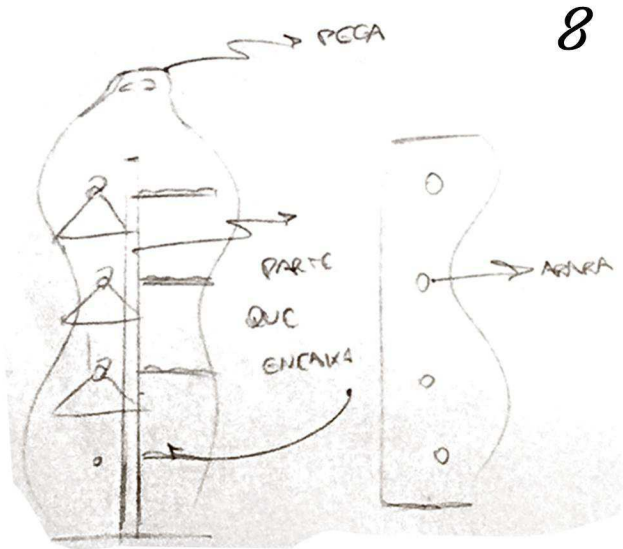 8
PEGA
PARTE
QUE
ENCAIXA
ARARA